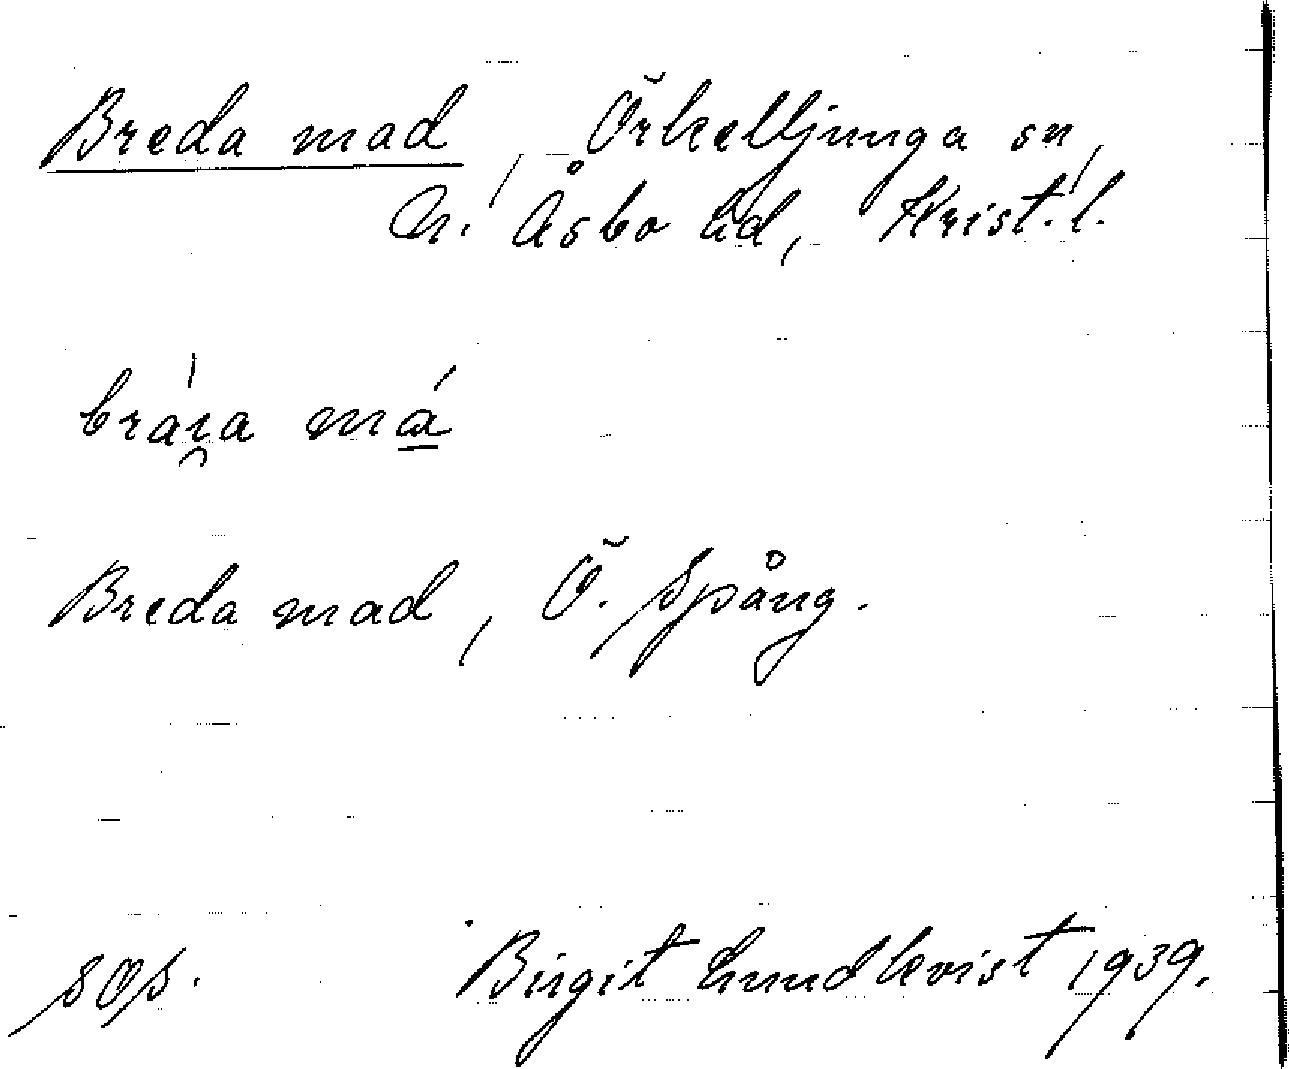 Breda mad, Örkelljunga sn,
N. Åsbo hd, Krist. l.
bráɪ̯a má
Breda mad, Ö. Spång.
sOs.
Birgit Lundkvist 1939.